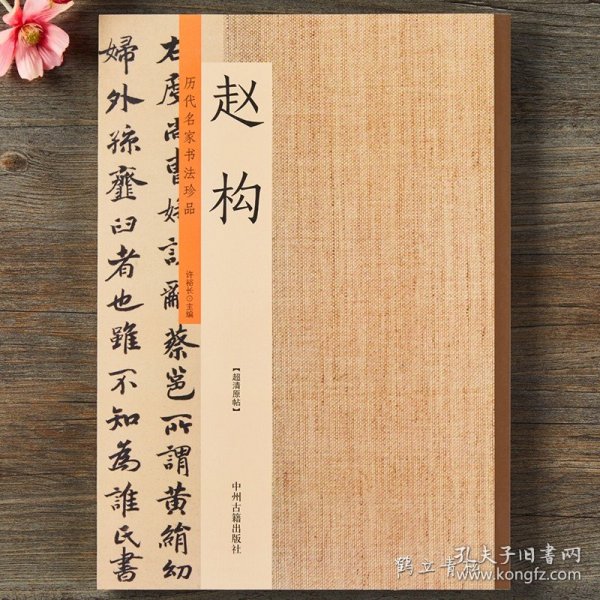 赵构
历代名家书法珍品
许裕长⊙主编
【超清原帖】
中州古籍出版社
右度尚曹娥誄辭蔡邕所謂黄絹幼
婦外孫虀臼者也雖不知為誰氏書
鹤立青松
孔夫子旧书网
www.kongfz.com